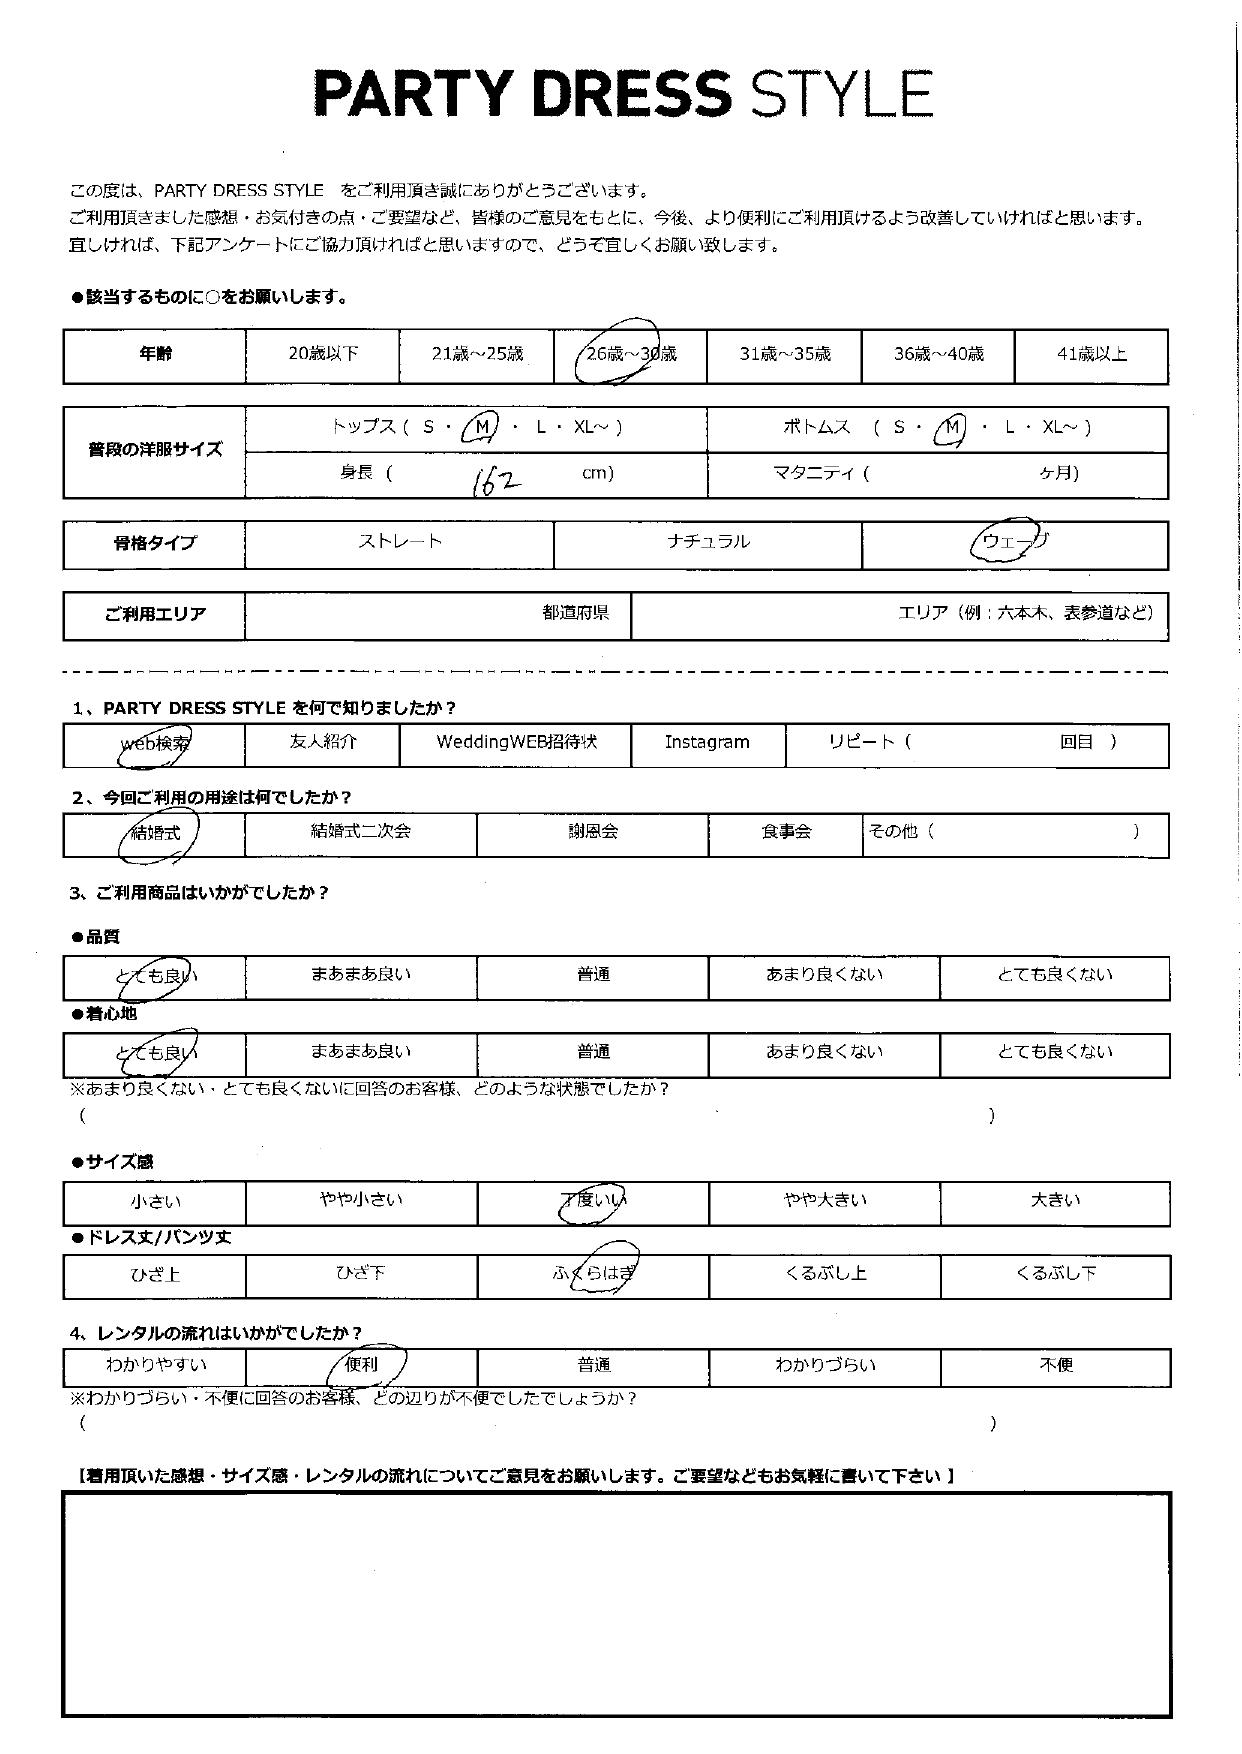 PARTY DRESS STYLE
この度は、PARTY DRESS STYLE をご利用頂き誠にありがとうございます。
ご利用頂きました感想・お気付きの点・ご要望など、皆様のご意見をもとに、今後、より便利にご利用頂けるよう改善していければと思います。
宜しければ、下記アンケートにご協力頂ければと思いますので、どうぞ宜しくお願い致します。
●該当するものに○をお願いします。
年齢 20歳以下 21歳～25歳 26歳～30歳 31歳～35歳 36歳～40歳 41歳以上
普段の洋服サイズ
トップス ( S ・ M ・ L ・ XL～ ) ボトムス ( S ・ M ・ L ・ XL～ )
身長 ( 162 cm) マタニティ ( ヶ月)
骨格タイプ ストレート ナチュラル ウェーブ
ご利用エリア 都道府県 エリア（例：六本木、表参道など）
1、PARTY DRESS STYLE を何で知りましたか？
web検索 友人紹介 WeddingWEB招待状 Instagram リピート ( 回目 )
2、今回ご利用の用途は何でしたか？
結婚式 結婚式二次会 謝恩会 食事会 その他 ( )
3、ご利用商品はいかがでしたか？
●品質
とても良い まあまあ良い 普通 あまり良くない とても良くない
●着心地
とても良い まあまあ良い 普通 あまり良くない とても良くない
※あまり良くない・とても良くないに回答のお客様、どのような状態でしたか？
( )
●サイズ感
小さい やや小さい 丁度いい やや大きい 大きい
●ドレス丈/パンツ丈
ひざ上 ひざ下 ふくらはぎ くるぶし上 くるぶし下
4、レンタルの流れはいかがでしたか？
わかりやすい 便利 普通 わかりづらい 不便
※わかりづらい・不便に回答のお客様、どの辺りが不便でしたでしょうか？
( )
【着用頂いた感想・サイズ感・レンタルの流れについてご意見をお願いします。ご要望などもお気軽に書いて下さい 】